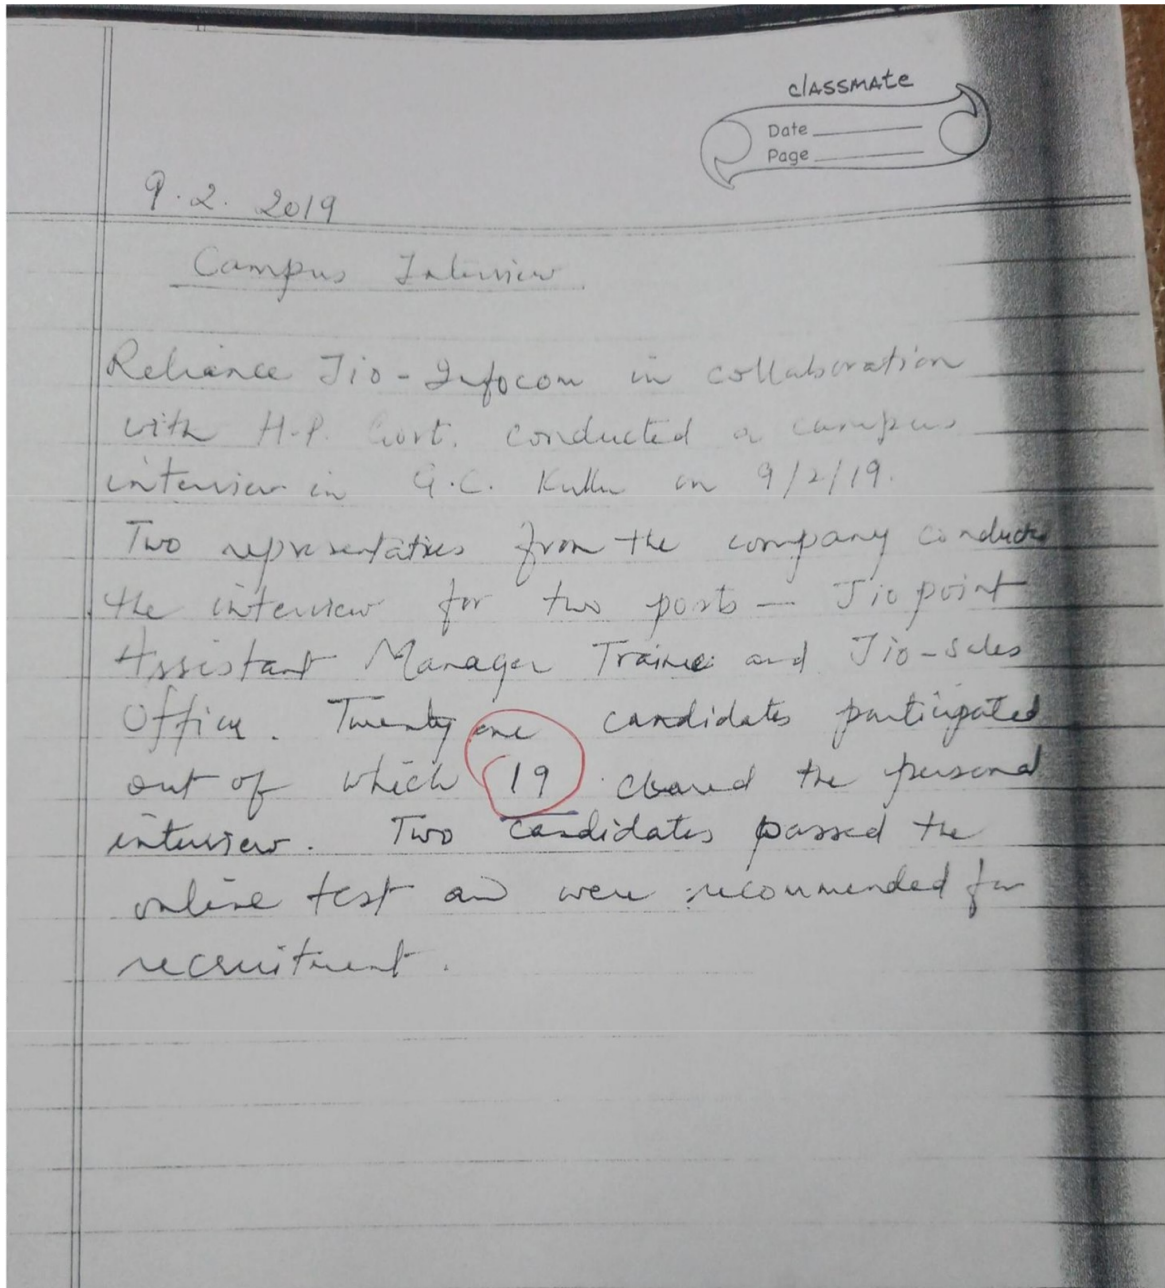 classmate
Date
Page
9.2.2019
Campus Interview
Reliance Jio-Infocom in collaboration
with H.P. Govt. conducted a campus
interview in G.C. Kullu on 9/2/19.
Two representatives from the company conducted
the interview for two posts — Jio point
Assistant Manager Trainee and Jio-sales
Officer. Twenty one candidates participated
out of which 19 cleared the personal
interview. Two candidates passed the
online test and were recommended for
recruitment.